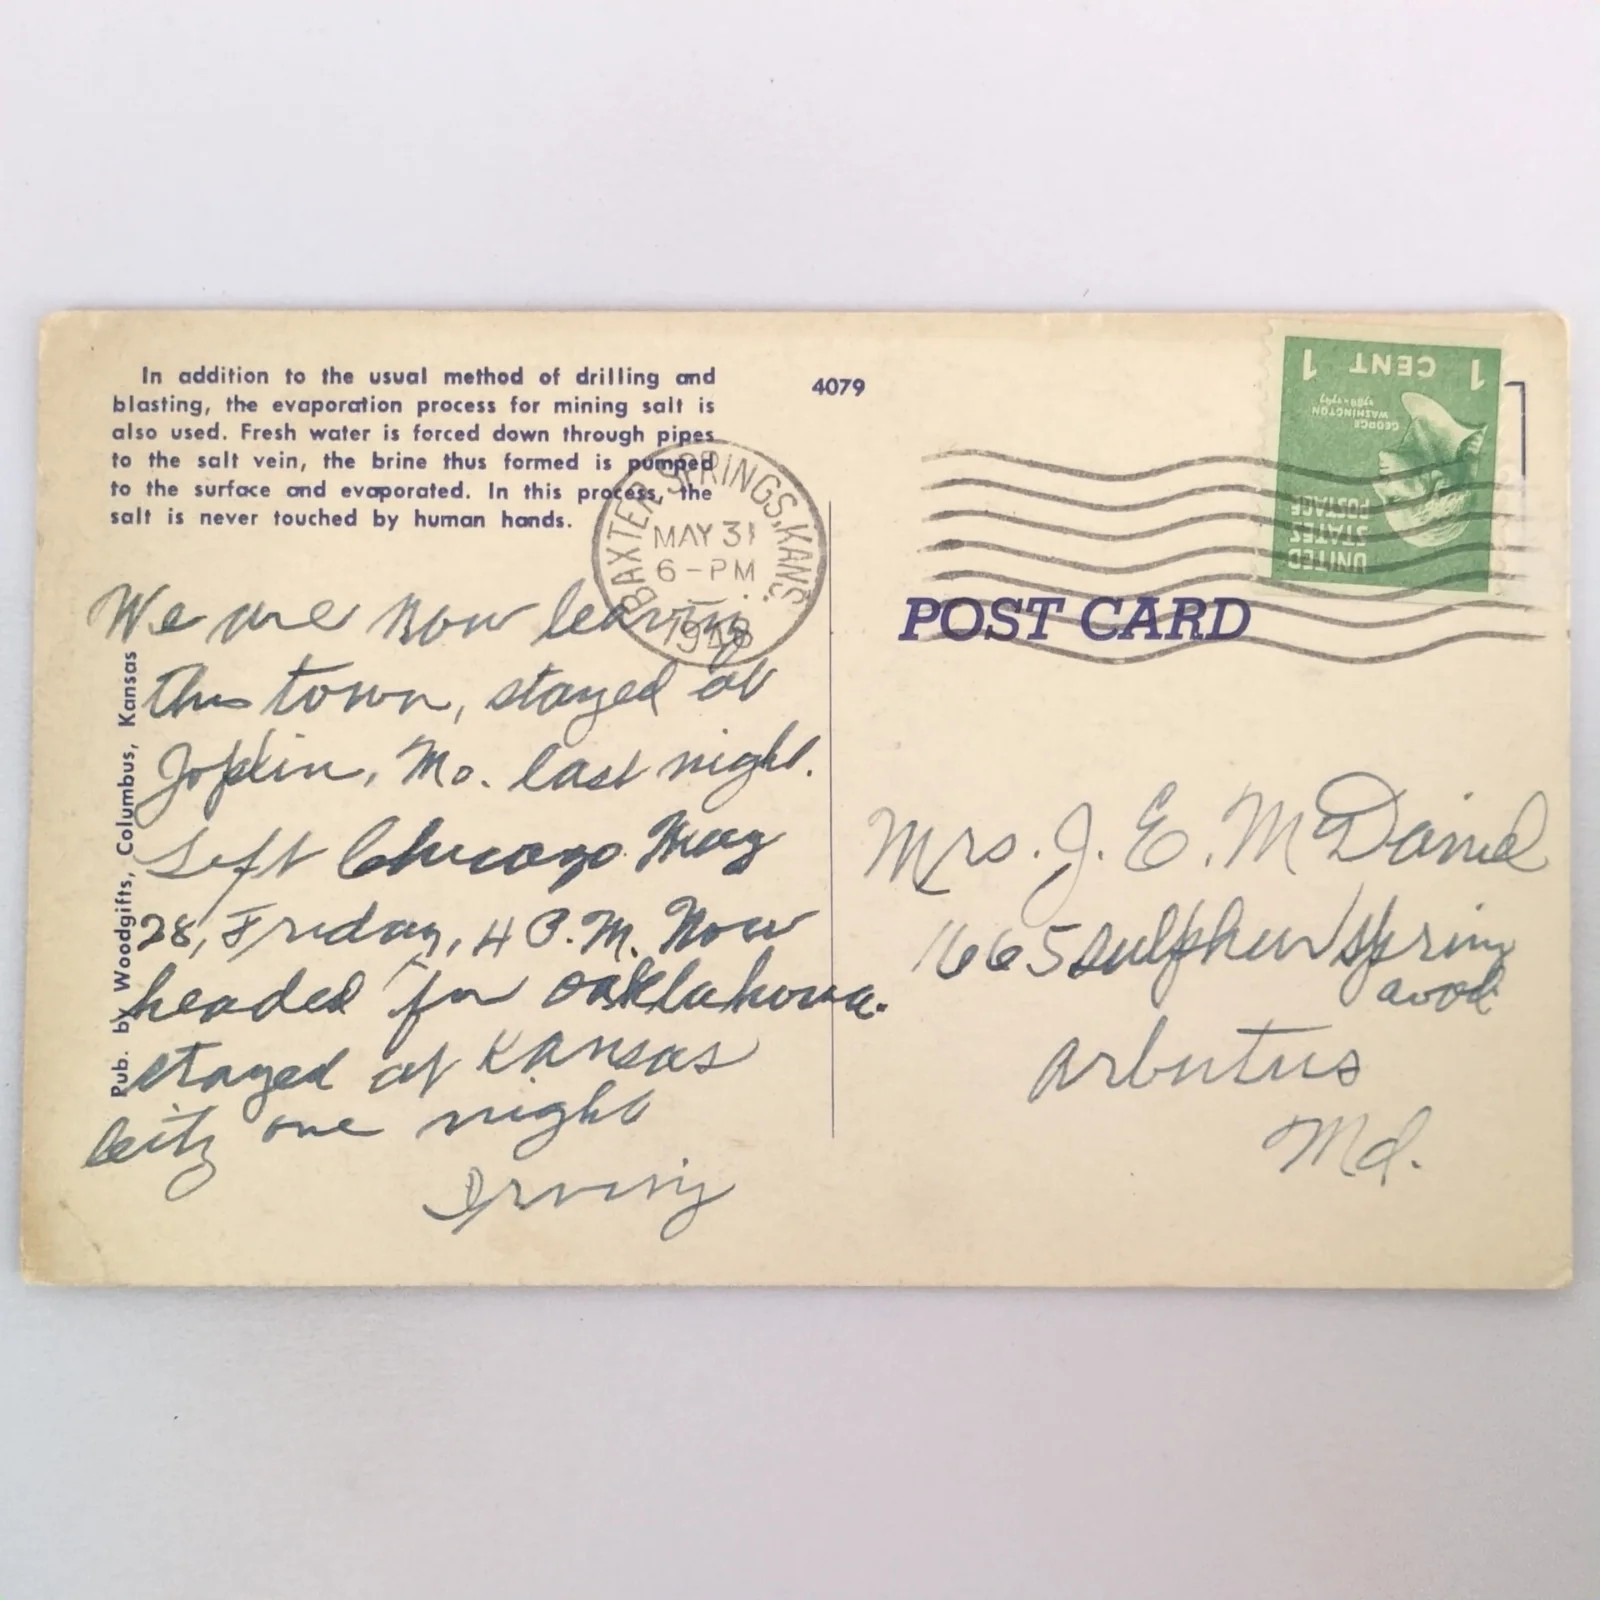 In addition to the usual method of drilling and
blasting, the evaporation process for mining salt is
also used. Fresh water is forced down through pipes
to the salt vein, the brine thus formed is pumped
to the surface and evaporated. In this process, the
salt is never touched by human hands.
4079
BAXTER SPRINGS, KANS.
MAY 31
6-PM
1948
We are now leaving
this town, stayed at
Joplin, Mo. last night.
Left Chicago May
28, Friday, 4 P.M. Now
headed for Oaklahoma.
stayed at Kansas
City one night
Irving
Pub. by Woodgifts, Columbus, Kansas
1 CENT 1
GEORGE
WASHINGTON
1789-1797
UNITED
STATES
POSTAGE
POST CARD
Mrs. J. E. McDaniel
1665 Sulphur Spring
Arbutus
Md.